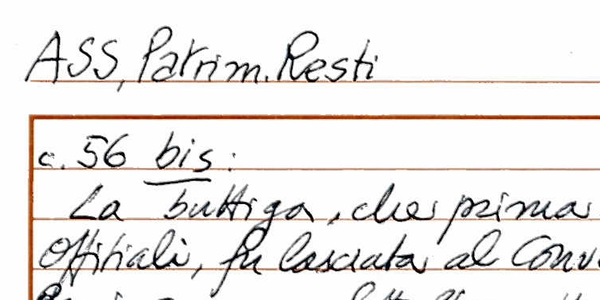 ASS, Patrim. Resti
c. 56 bis:
La buttiga, che prima
offitiali, fu lasciata al Conv